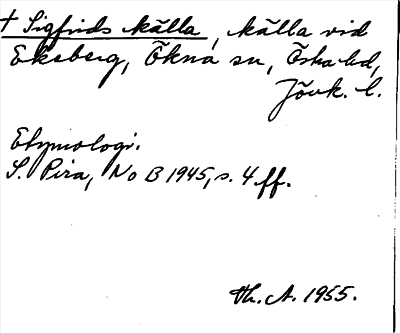 † Sigfrids källa, källa vid
Ekeberg, Ökna sn, Östra hd,
Jönk. l.
Etymologi.
S. Pira, No B 1945, s. 4 ff.
Th. A. 1955.